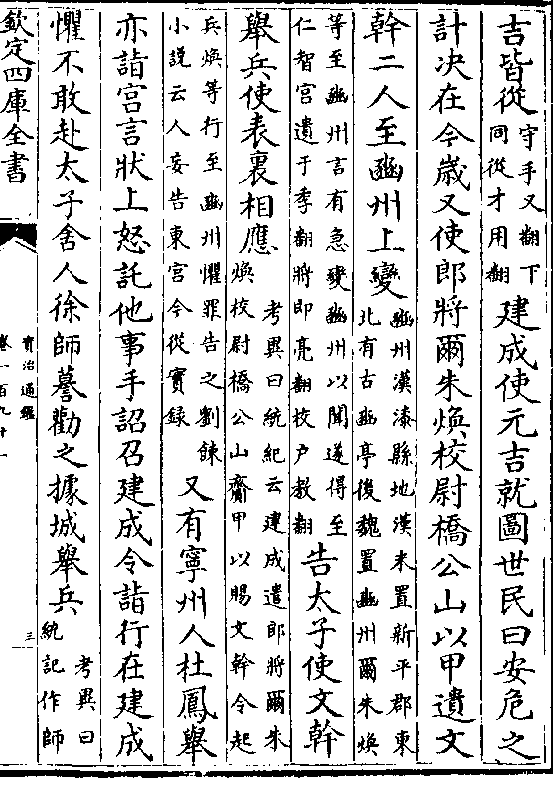 吉皆從守手又翻下同從才用翻建成使元吉就圖世民曰安危之
計决在今歲又使郎將爾朱煥校尉橋公山以甲遺文
幹二人至豳州上變豳州漢漆縣地漢末置新平郡東北有古豳亭後魏置豳州爾朱煥
等至豳州言有急變豳州以聞遂得至仁智宫遺于季翻將即亮翻校户教翻告太子使文幹
舉兵使表裏相應考異曰統紀云建成遣郎將爾朱煥校尉橋公山齎甲以賜文幹令起
兵煥等行至豳州懼罪告之劉餗小説云人妄告東宫今從實録又有寧州人杜鳳舉
亦詣宫言狀上怒託他事手詔召建成令詣行在建成
懼不敢赴太子舍人徐師謩勸之據城舉兵考異曰統記作師
欽定四庫全書
資治通鑑
卷一百九十一
三